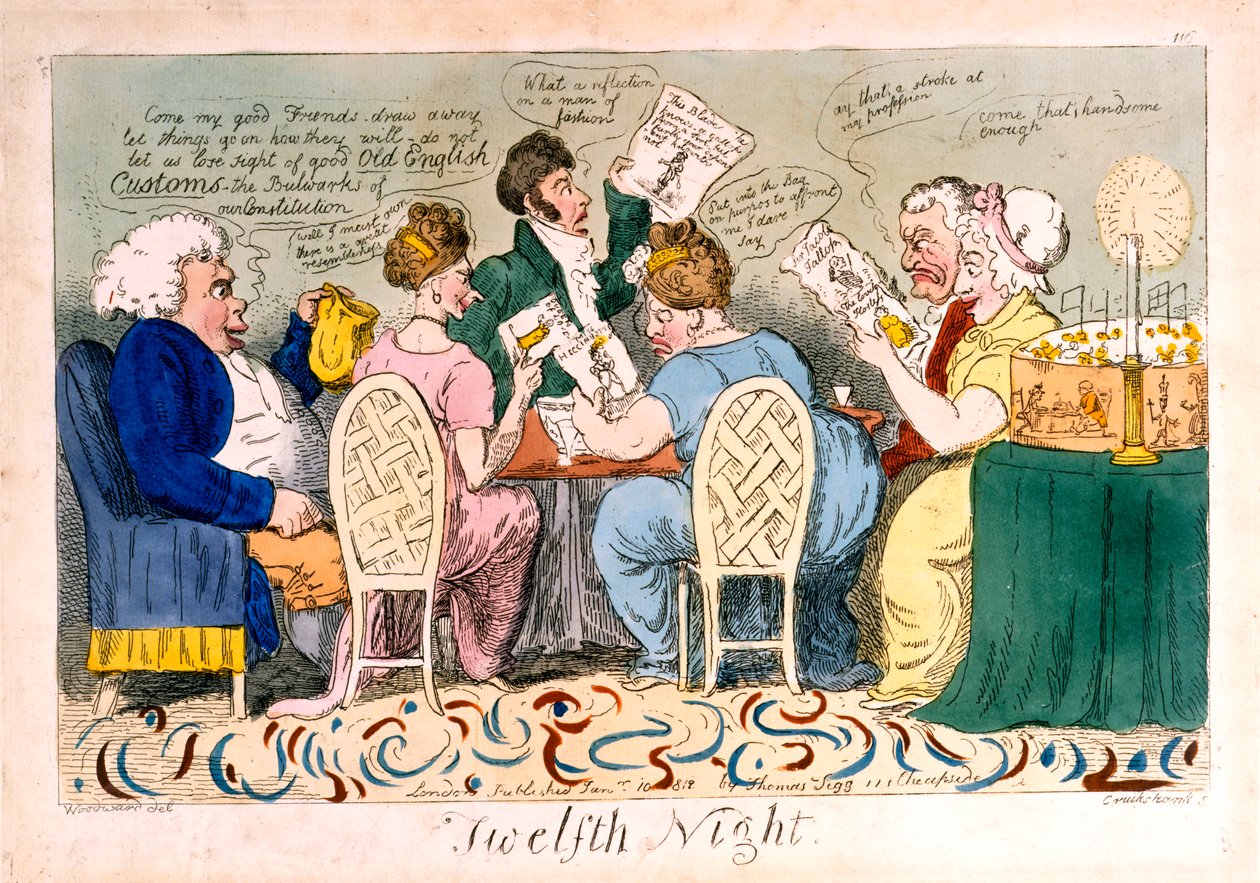 116
Come my good Friends - draw away
let things go on how they will - do not
let us lose sight of good Old English
Customs - the Bulwarks of
our Constitution
What a reflection
on a man of
fashion
This Blade
ay that,s a stroke at
my profession
come that,s handsome
enough
well I must own
there is a great
resemblehefs
Put into the Bag
on purpos to affront
me I dare
say
London Published Jany. 10 1812 by Thomas Tegg 111 Cheapside
Woodward del
Cruikshank S
Twelfth Night.